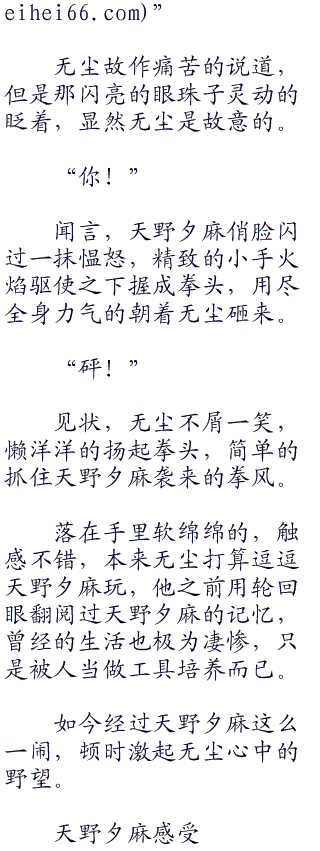 eihei66.com)”
无尘故作痛苦的说道，
但是那闪亮的眼珠子灵动的
眨着，显然无尘是故意的。
“你！”
闻言，天野夕麻俏脸闪
过一抹愠怒，精致的小手火
焰驱使之下握成拳头，用尽
全身力气的朝着无尘砸来。
“砰！”
见状，无尘不屑一笑，
懒洋洋的扬起拳头，简单的
抓住天野夕麻袭来的拳风。
落在手里软绵绵的，触
感不错，本来无尘打算逗逗
天野夕麻玩，他之前用轮回
眼翻阅过天野夕麻的记忆，
曾经的生活也极为凄惨，只
是被人当做工具培养而已。
如今经过天野夕麻这么
一闹，顿时激起无尘心中的
野望。
天野夕麻感受